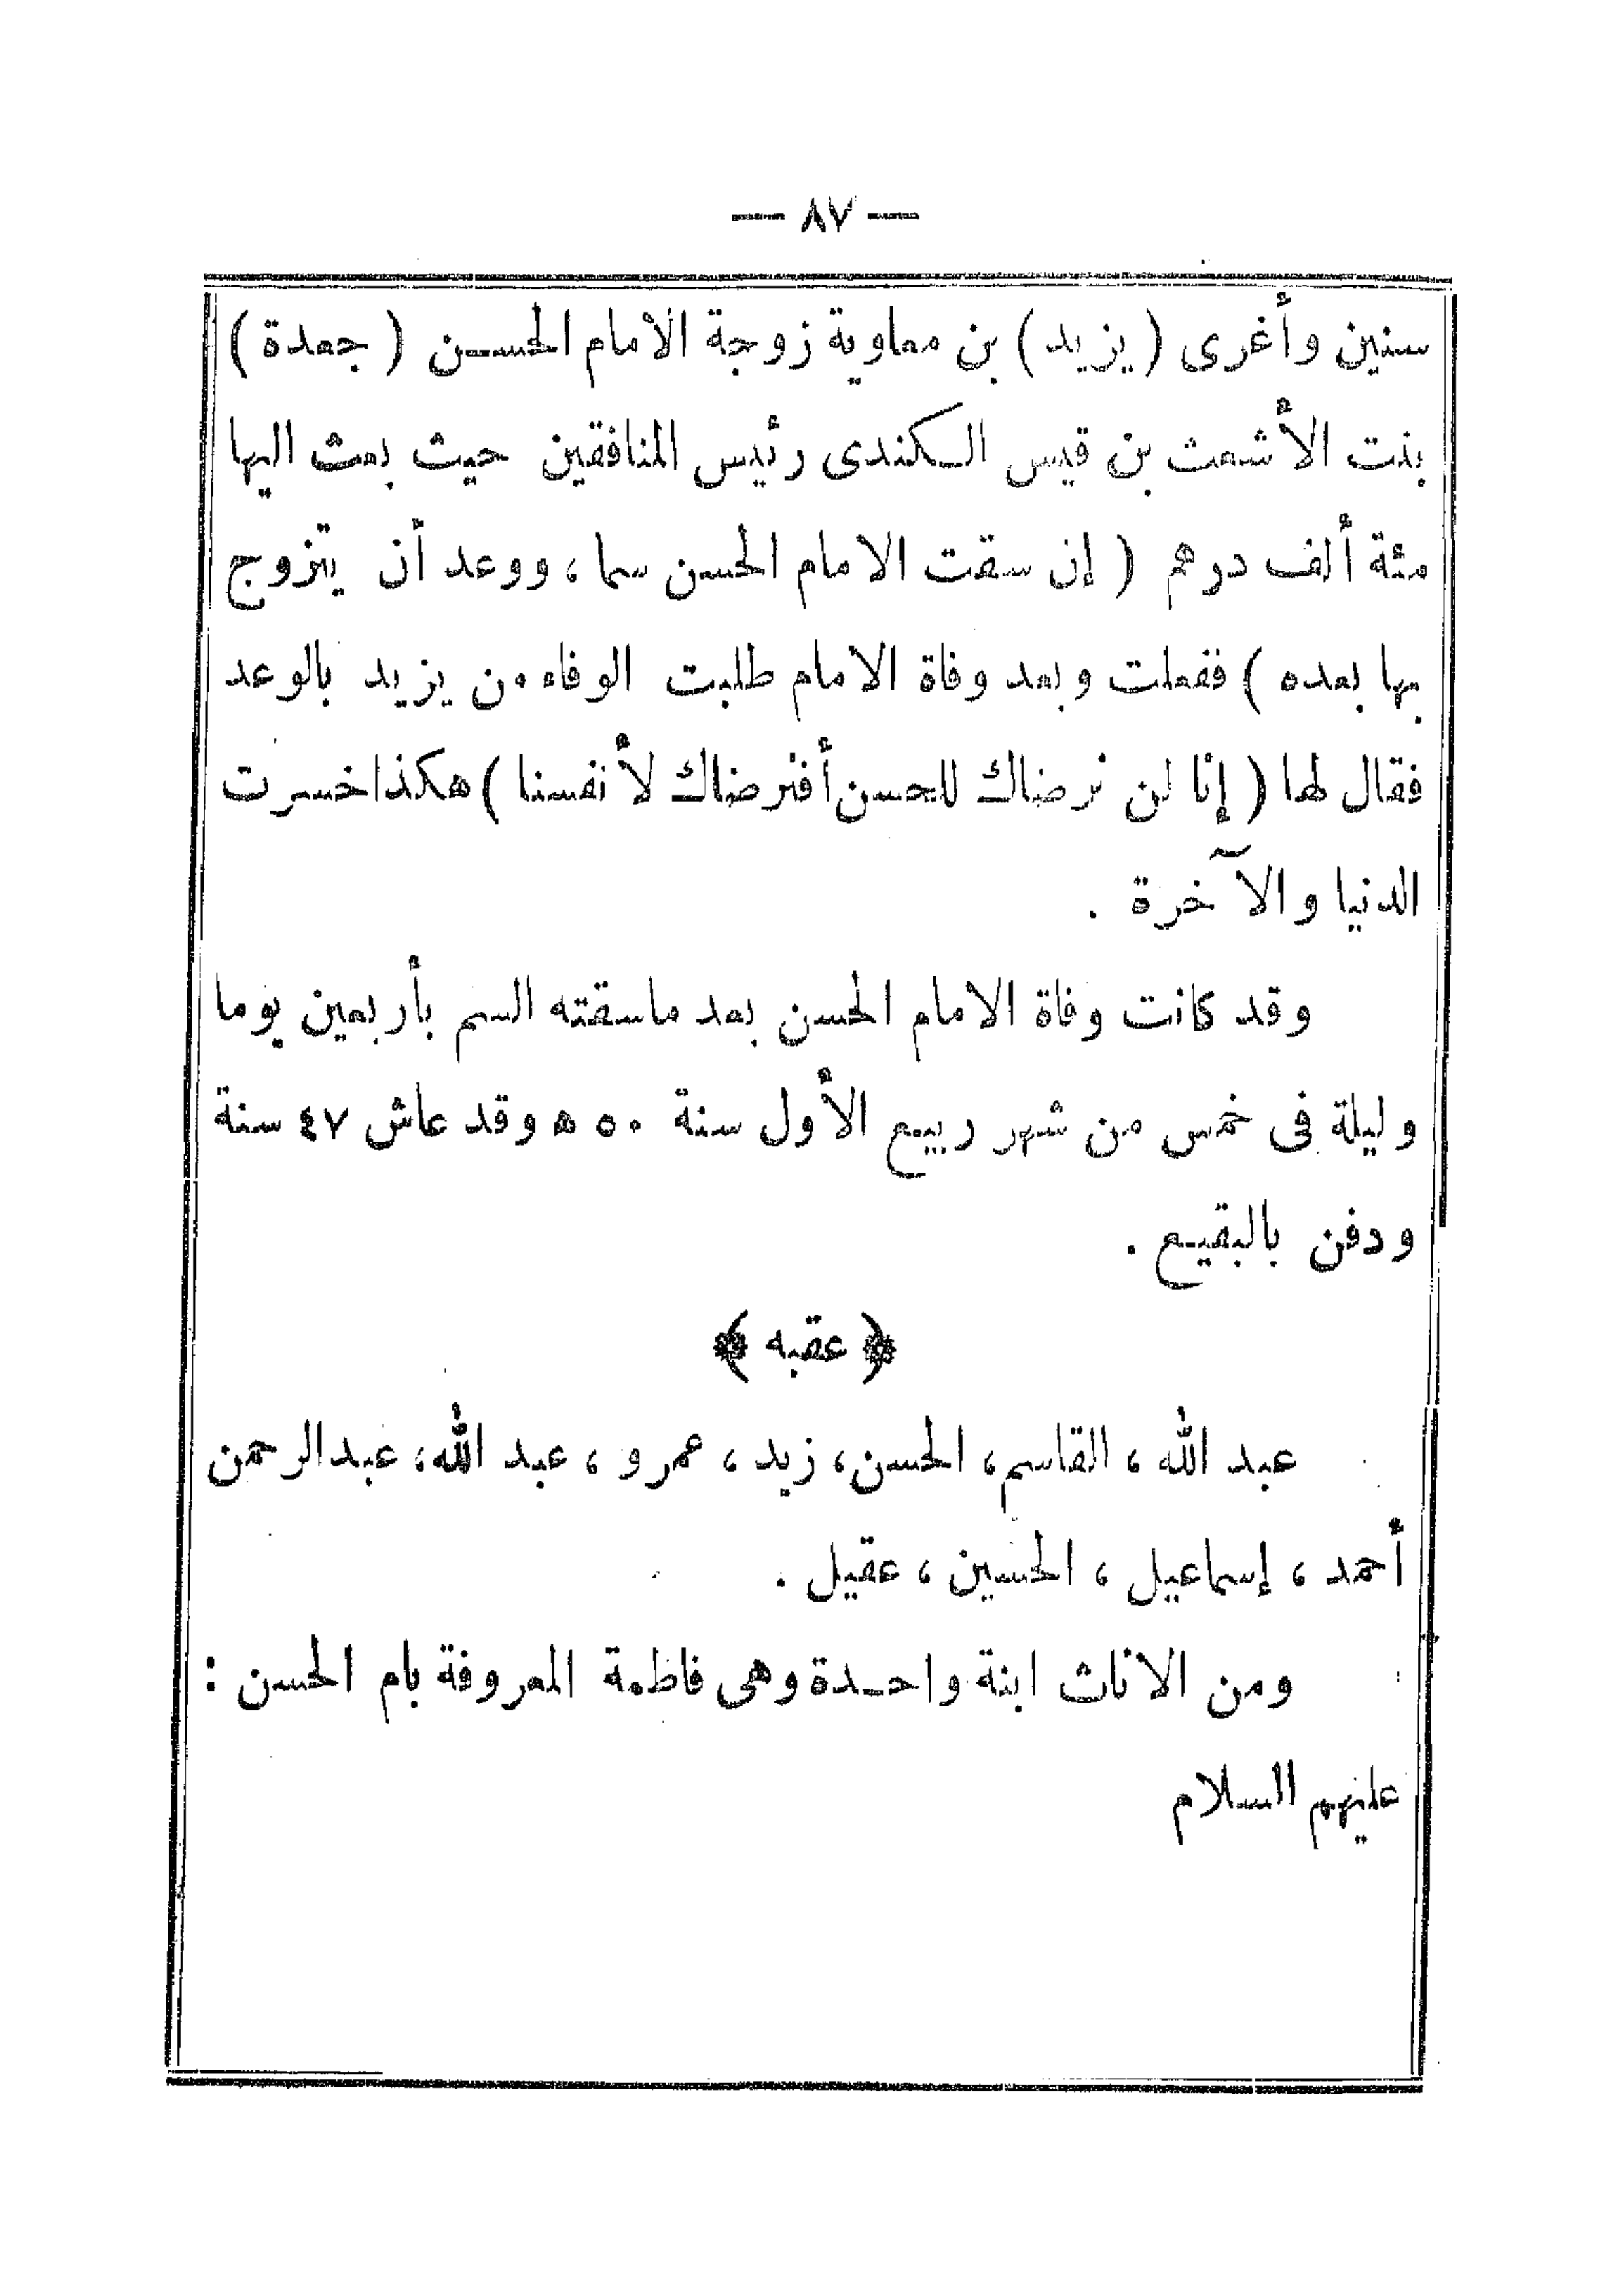 — ٨٧ —
سنين وأغرى ( يزيد ) بن معاوية زوجة الامام الحسن ( جعدة )
بنت الأشعث بن قيس الكندى رئيس المنافقين حيث بعث اليها
مئة ألف درهم ( إن سقت الامام الحسن سما ، ووعد أن يتزوج
بها بعده ) ففعلت وبعد وفاة الامام طلبت الوفاء من يزيد بالوعد
فقال لها ( إنا لن نرضاك للحسن أفنرضاك لأنفسنا ) هكذا خسرت
الدنيا والآخرة .
وقد كانت وفاة الامام الحسن بعد ماسقته السم بأربعين يوما
وليلة فى خمس من شهر ربيع الأول سنة ٥٠ ه وقد عاش ٤٧ سنة
ودفن بالبقيع .
﴿ عقبه ﴾
عبد الله ، القاسم ، الحسن ، زيد ، عمرو ، عبد الله ، عبدالرحمن
أحمد ، إسماعيل ، الحسين ، عقيل .
ومن الاناث ابنة واحدة وهى فاطمة المعروفة بام الحسن :
عليهم السلام